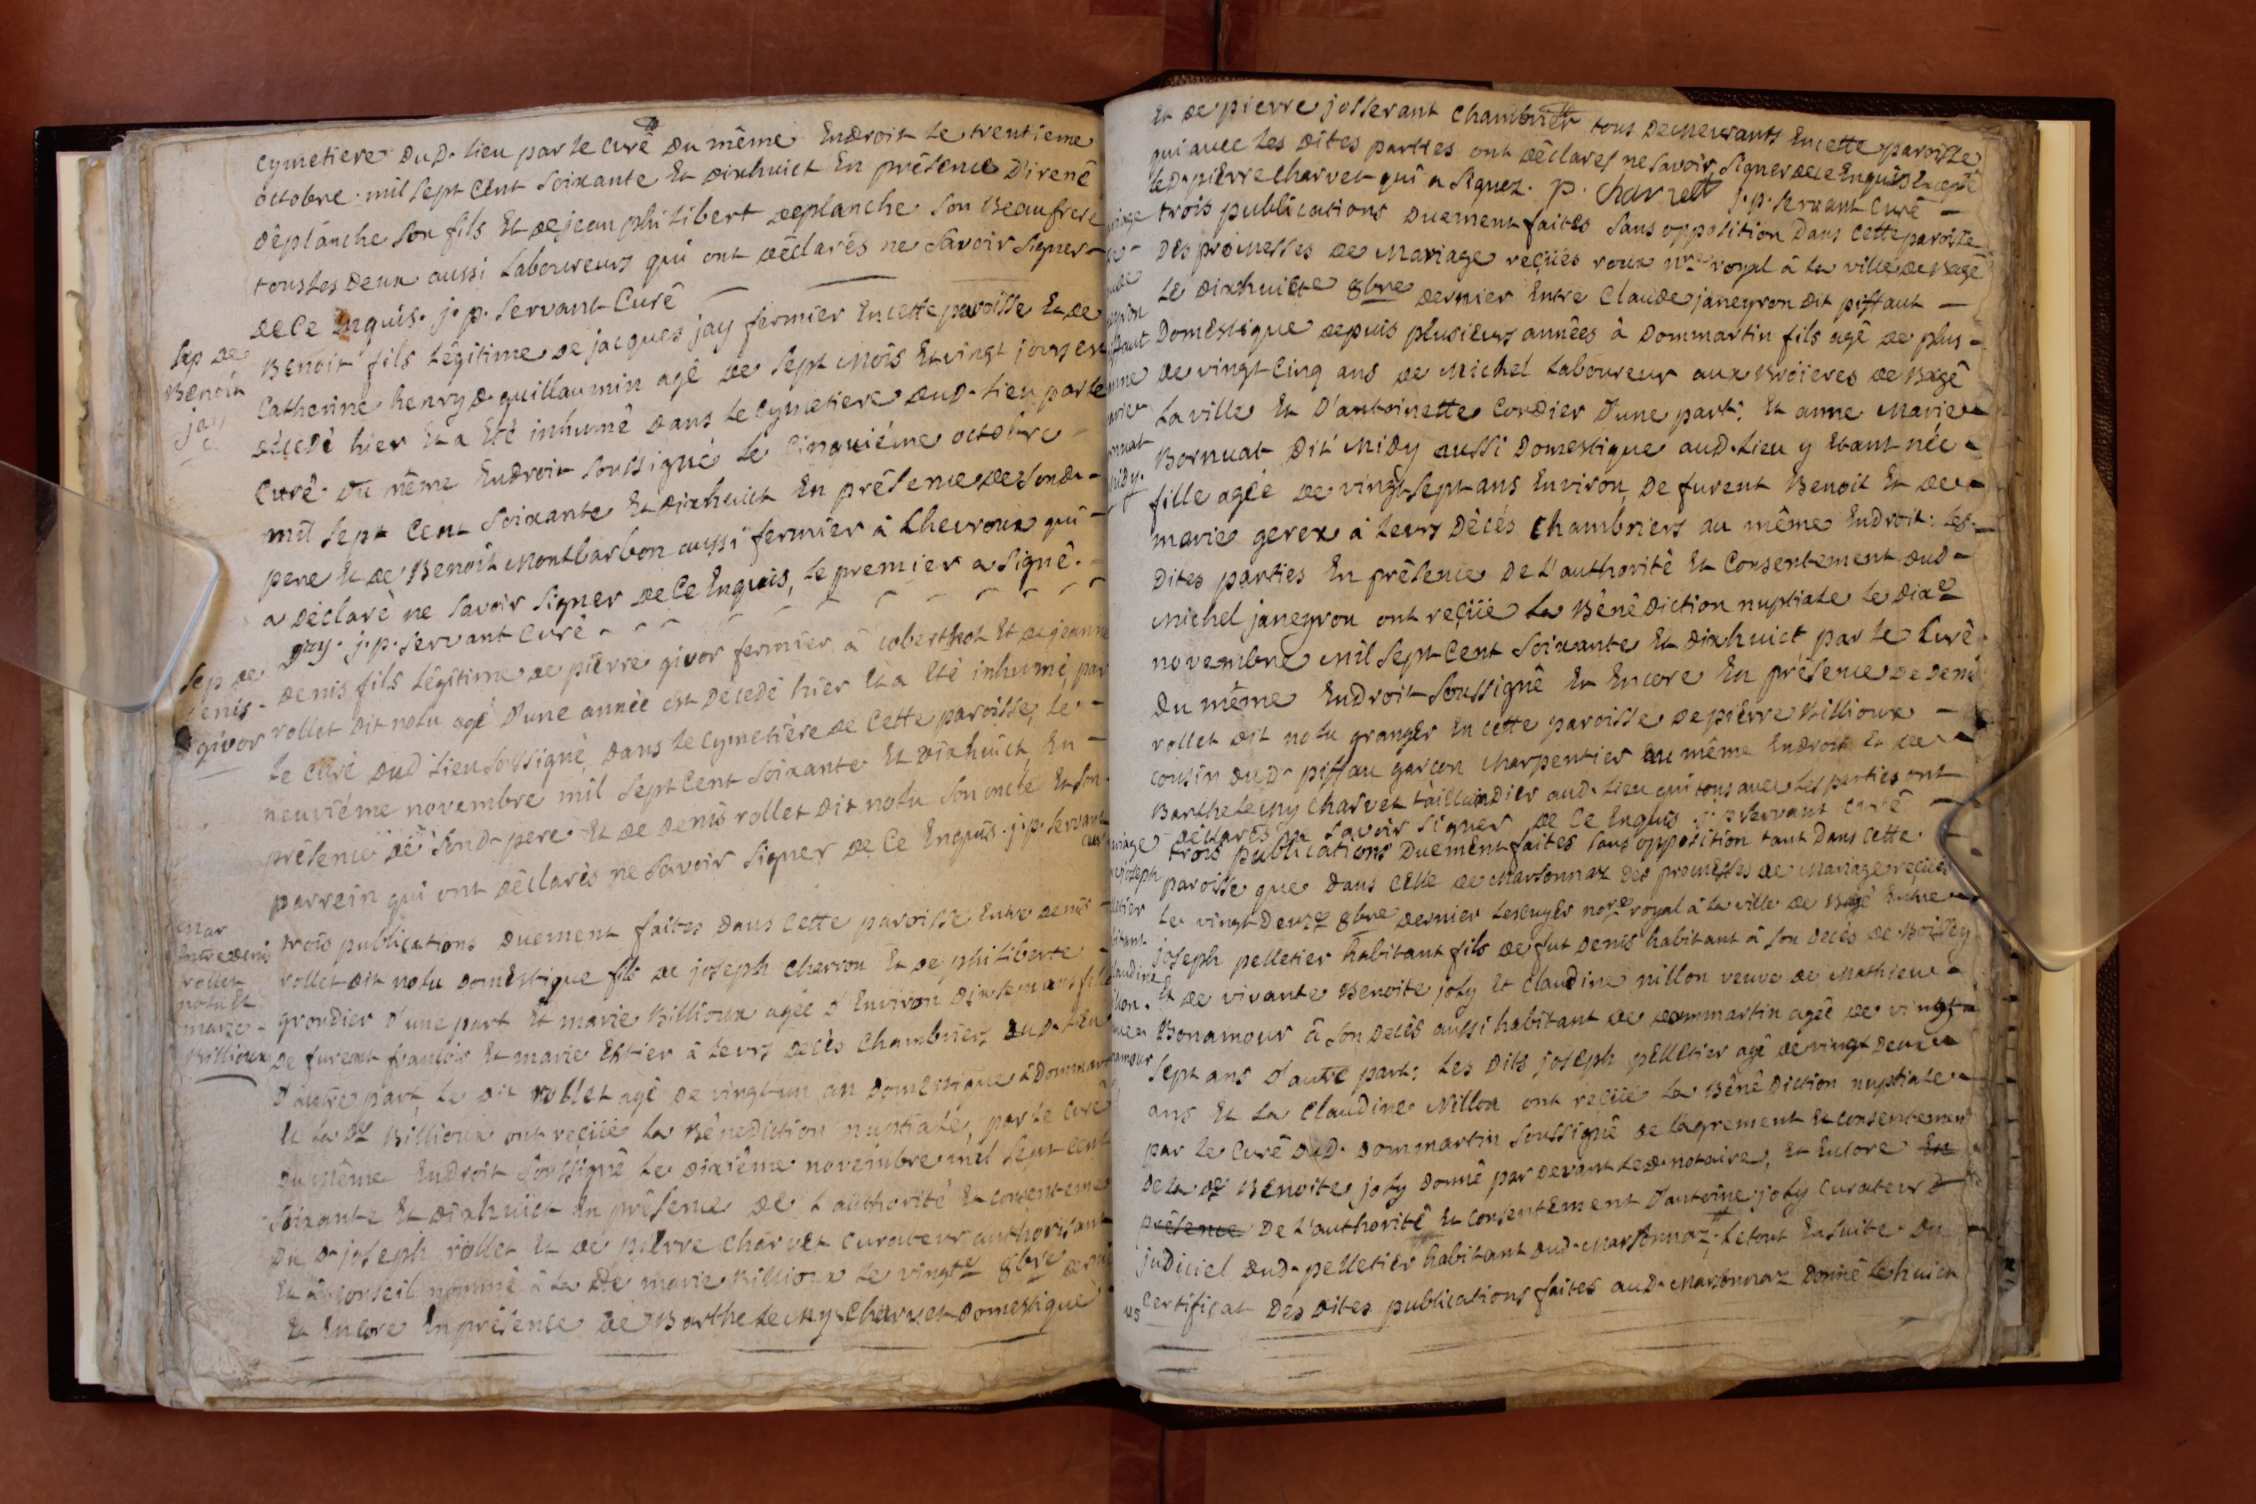 cymetiere dud. lieu par le curé du même Endroit le trentieme
octobre mil sept cent soixante et dixhuict En présence D'irené
déplanche son fils Et de jean philibert deplanche son Beaufrere
tous les deux aussi Laboureurs qui ont déclarés ne savoir signer
de ce Enquis. j. p. servant Curé
Sep de
Benoit
jay
Benoit fils Légitime de jacques jay fermier En cette paroisse Et de
Catherine henry d. guillaumin agé de sept mois Et vingt jours est
décédé hier Et a Eté inhumé dans le Cymetiere dud. lieu par le
Curé du même Endroit soussigné le Cinquiéme octobre
mil sept Cent soixante Et dixhuict En présence de sond.
pere Et de Benoît Montbarbon aussi fermier à Chevroux qui
a déclaré ne savoir signer de Ce Enquis, le premier a signé.
gay. j. p. servant Curé
Sep de
denis
givor
denis fils Légitime de pierre givor fermier à Et de jeanne
rollet dit nolu agé d'une année est décedé hier Et a Eté inhumé par
le curé dud Lieu soussigné, dans le cymetière de Cette paroisse, le
neuviéme novembre mil sept Cent soixante Et dixhuict, En
présence de sond. pere Et de denis rollet dit nolu son oncle Et son
parrein qui ont déclarés ne savoir signer de Ce Enquis. j. p. servant
curé
mar
Entre denis
rollet
nolu Et
marie
Billioux
trois publications duement faites dans Cette paroisse Entre denis
rollet dit nolu domestique fils de joseph Cherron Et de philiberte
grondier d'une part Et marie Billioux agée d'Environ dixsept ans fille
de furent françois Et marie Estier à leurs décès Chambriers dud. lieu
d'autre part, le dit rollet agé de vingt un an domestique à Dommart
Et la de Billioux ont reçüe la Bénédiction nuptiale, par le Curé
du même Endroit soussigné le dixiéme novembre mil sept cent
soixante Et dixhuict En présence de l'authorité Et consenteme
du d. joseph rollet Et de pierre Charvet curateur authorisant
Et à Conseil nommé à la de marie Billioux le vingte 8bre dernier
Et Encore En présence de Barthelemy Charvet domestique
Et de pierre josserant Chambrier tous demeurants En cette paroisse
qui avec les dites parties ont déclarés ne savoir signer de ce Enquis Excepté
le d. pierre Charvet qui a signez. p. charvet j. p. servant Curé
trois publications duement faites sans opposition dans Cette paroisse
des promesses de Mariage reçües roux nre royal à la ville de Bagé
le dixhuicte 8bre dernier Entre Claude janeyron dit piffaut
Domestique depuis plusieurs années à Dommartin fils agé de plus
de vingt Cinq ans de Michel Laboureur aux Broieres de Bagé
La ville Et D'antoinette Cordier d'une part: Et anne Marie
Bornuat dit Midy aussi Domestique aud. lieu y Etant née
fille agée de vingt sept ans Environ de furent Benoit Et de
marie gerex à leurs décès Chambriers au même Endroit: les
dites parties En présence de l'authorité Et Consentement dud
Michel janeyron ont reçüe la Bénédiction nuptiale le dixe
novembre mil sept Cent soixante Et dixhuict par le Curé
du même Endroit soussigné Et Encore En présence de denis
rollet dit nolu granger En cette paroisse de pierre Billioux
cousin dud. piffau garçon Charpentier au même Endroit Et de
Barthelemy Charvet taillandier aud. lieu qui tous avec les parties ont
déclarés ne savoir signer de Ce Enquis j. p servant curé
trois publications duement faites sans opposition tant dans Cette
paroisse que dans Celle de Marsonnax des promesses de Mariage reçües
le vingt deuxe 8bre dernier Lescuyer nore royal à la ville de Bagé Entre
joseph pelletier habitant fils de fut denis habitant à son décès de Boissey
Et de vivante Benoite joly Et Claudine nillon veuve de Mathieu
Bonamour à son décès aussi habitant de dommartin agée de vingt
sept ans d'autre part: les dits joseph pelletier agé de vingt deux
ans Et la Claudine Nillon ont reçüe la Bénédiction nuptiale
par le Curé dud. Dommartin soussigné de l'agrement Et consentement
de la de Benoite joly donné par devant le d. notaire, Et Encore En
présence De l'authorité Et Consentement d'antoine joly Curateur
judiciel dud. pelletier habitant dud. Marsonnaz; le tout Ensuite du
Certificat des dites publications faites aud. Marsonnaz donné le huict